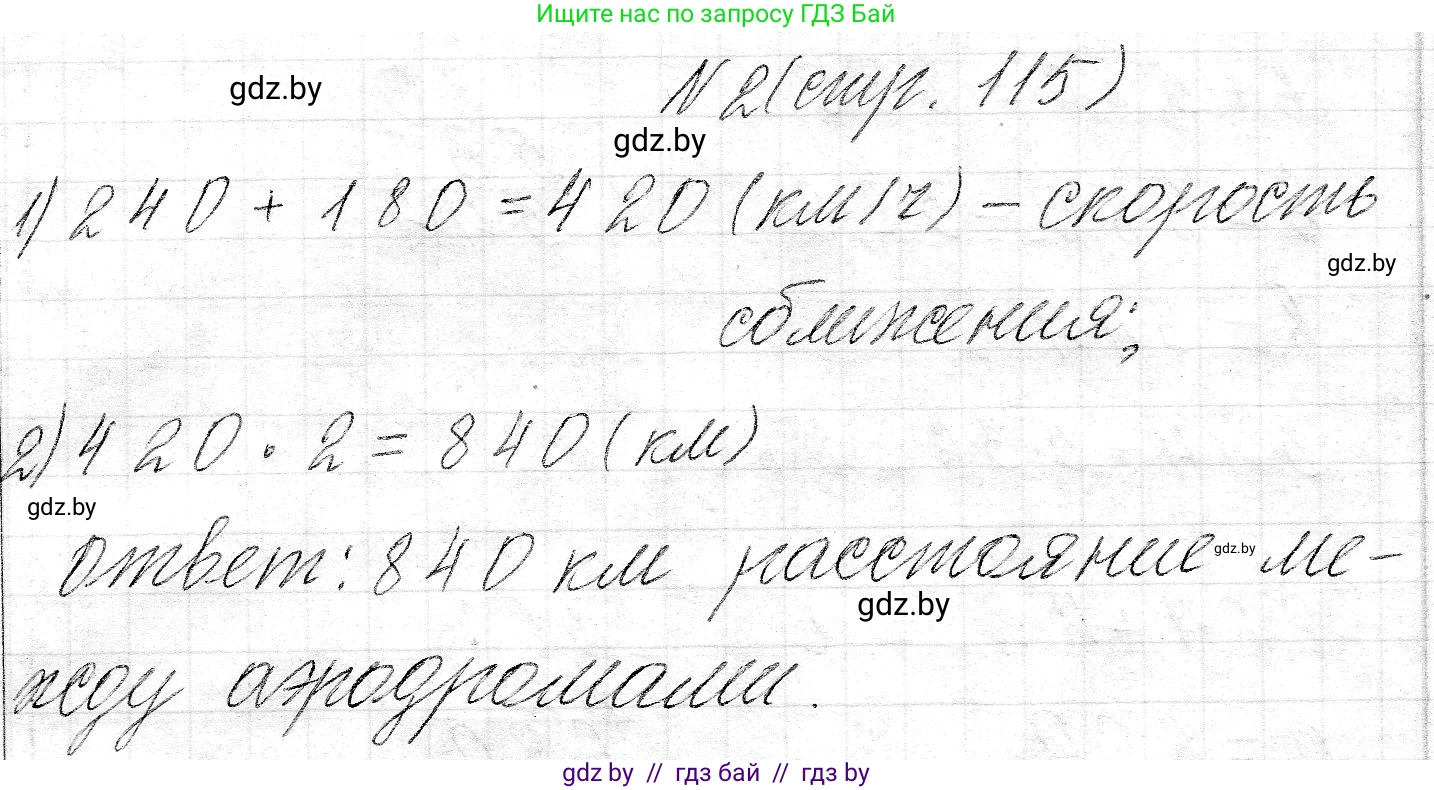 Ищите нас по запросу ГДЗ Бай
gdz.by
№ 2 (стр. 115)
gdz.by
1) 240 + 180 = 420 (км/ч) – скорость
gdz.by
сближения;
2) 420 · 2 = 840 (км)
gdz.by
Ответ: 840 км расстояние ме-
gdz.by
gdz.by
жду аэродромами.
gdz by // гдз бай // гдз by